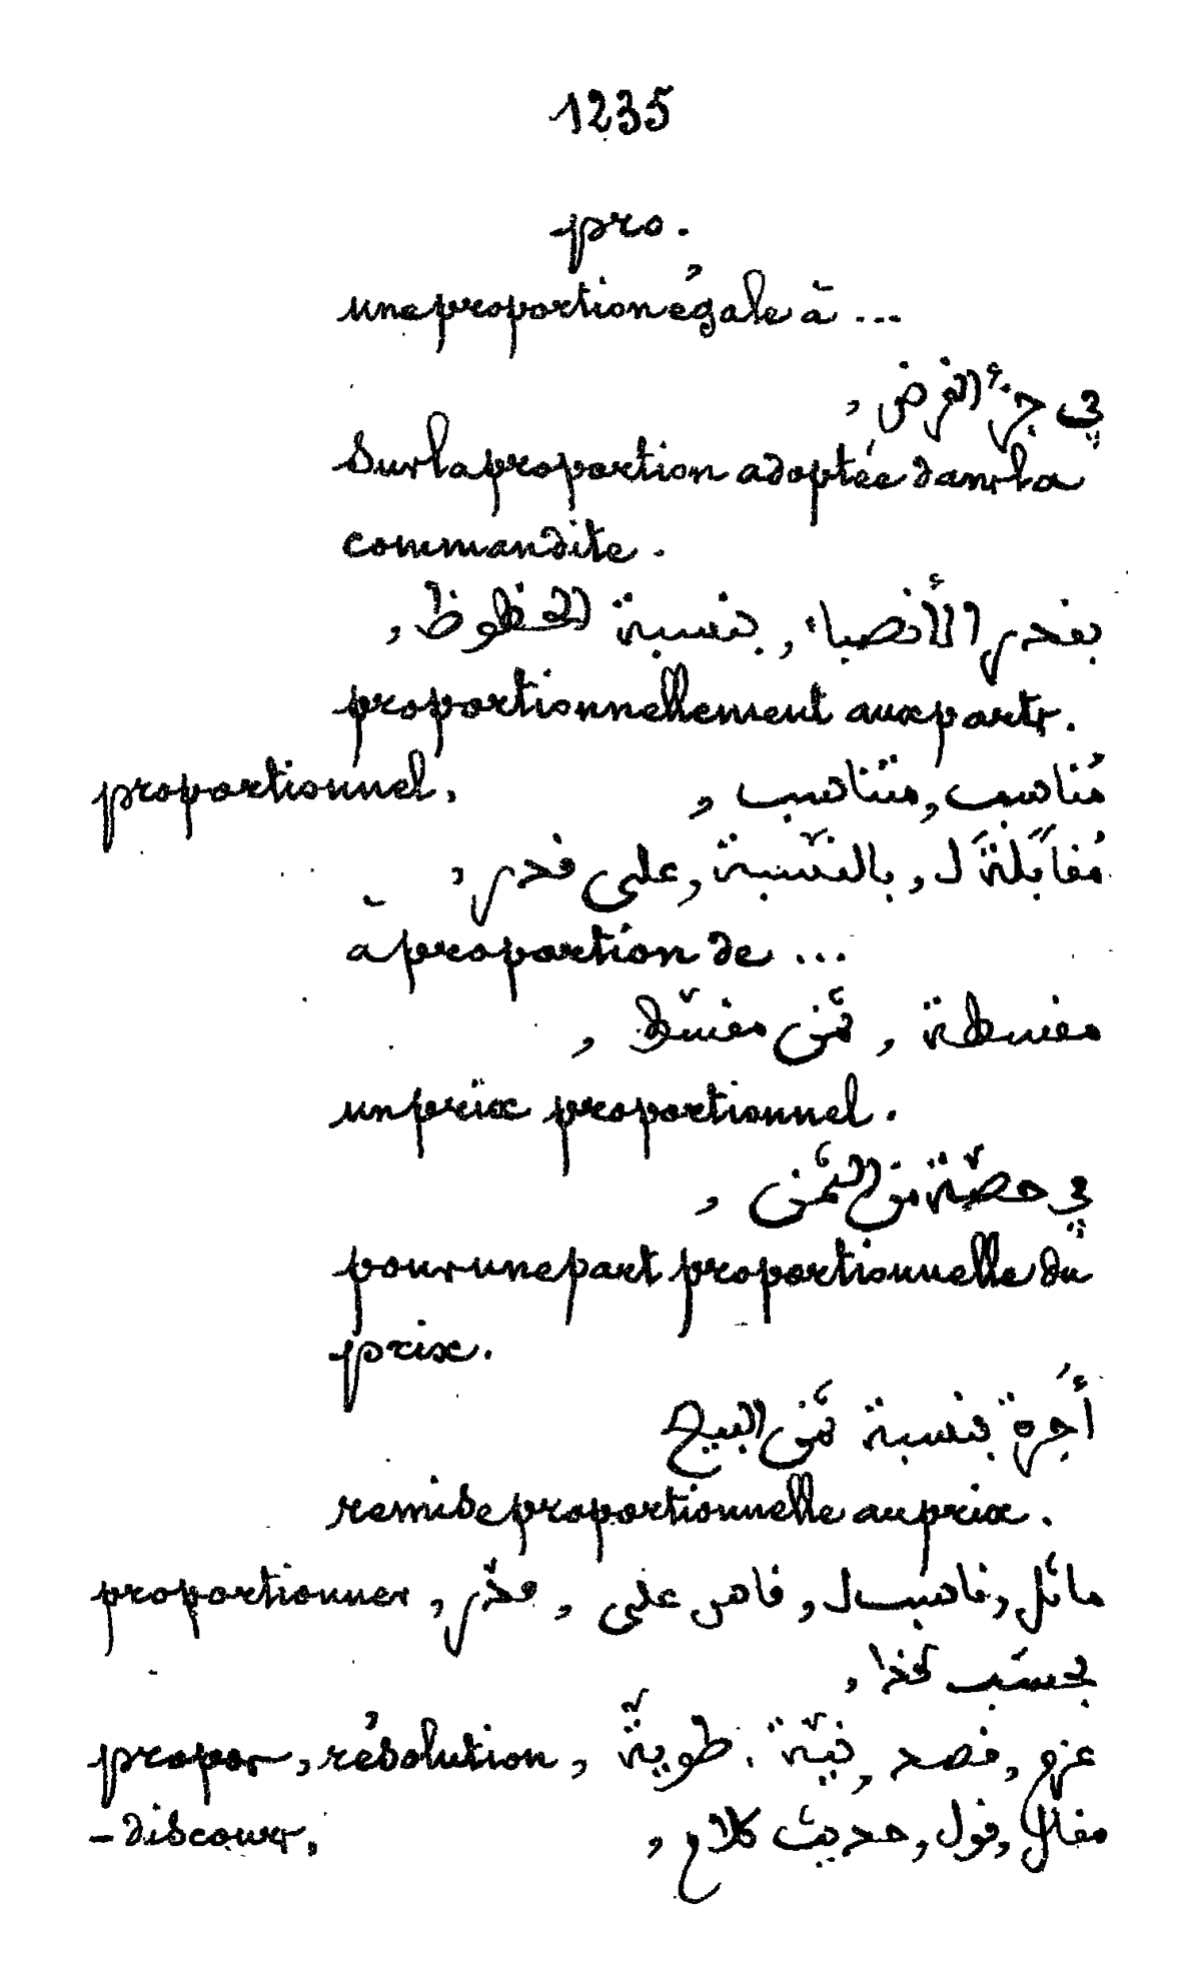 1235
pro.
une proportion égale à ...
في جزء القرض,
sur la proportion adoptée dans la
commandite.
بقدر الأنصباء, بنسبة الحظوظ,
proportionnellement aux parts.
proportionnel, مُناسب, متناسب,
مُقابَلةً ل, بالنّسبة, على قدر,
à proportion de ...
مقسطة, ثمن مقسّط,
un prix proportionnel.
في حصّة من الثمن,
pour une part proportionnelle du
prix.
أُجرة بنسبة ثمن البيع
remise proportionnelle au prix.
proportionner, ماثل, ناسب ل, قاس على, قدّر,
بحسَب كذا,
propos, résolution, عزم, قصد, نيّة. طويّة
- discours, مقال, قول, حديث كلام,